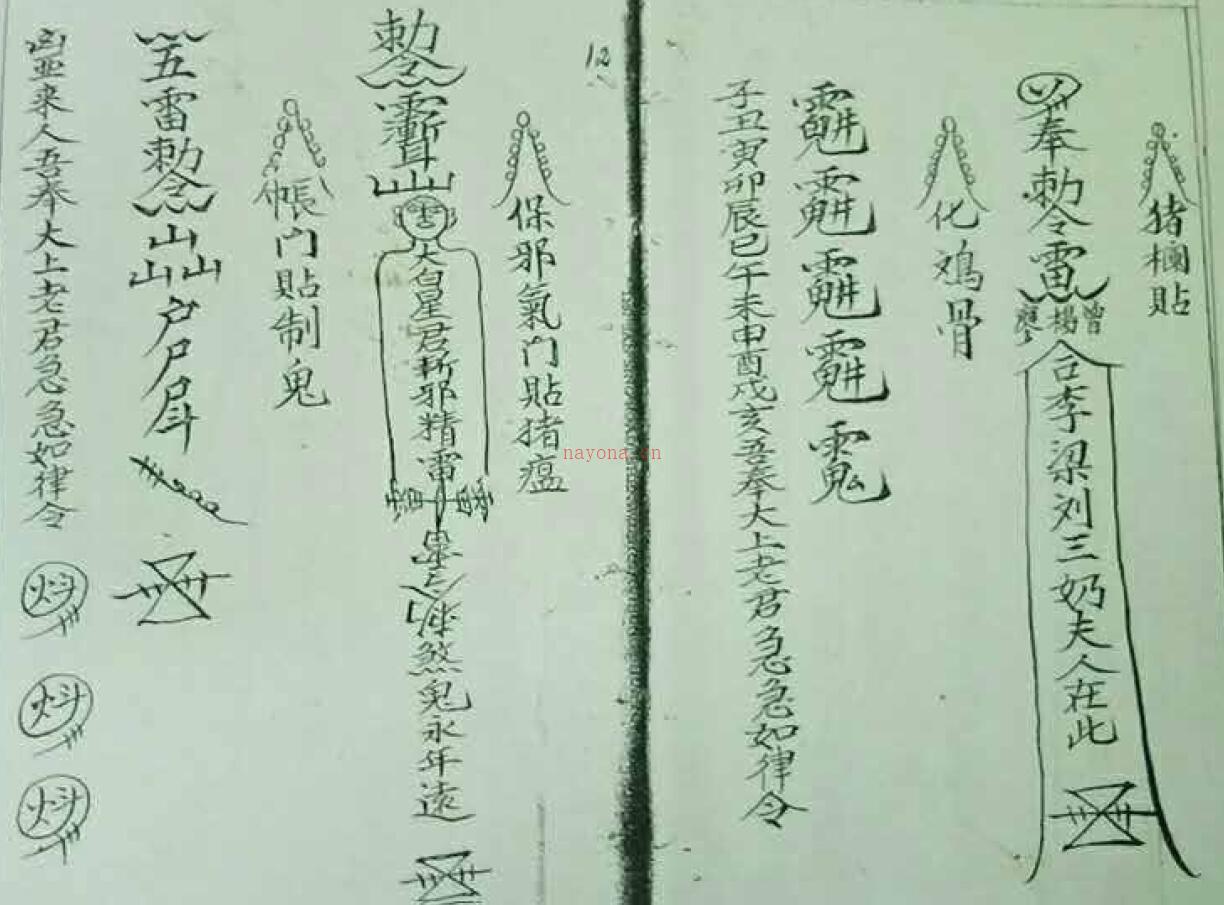 猪欄貼
奉勅令雷
廖楊曾
合李梁刘三奶夫人在此
化鸡骨
子丑寅卯辰巳午未申酉戌亥吾奉大上老君急急如律令
12
保邪氣门貼猪瘟
勅令
太白星君斩邪精雷
煞鬼永年遠
帳门貼制鬼
五雷勅令
山山山
来人吾奉大上老君急急如律令
nayona.cn